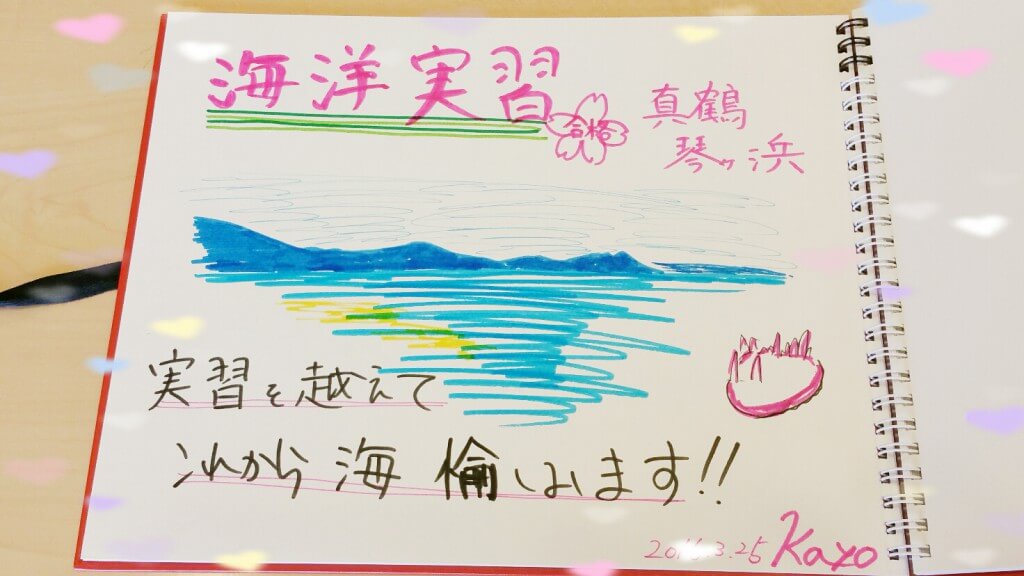 海洋実習
合格
真鶴
琴ヶ浜
実習を越えて
これから海愉しみます!!
Kayo